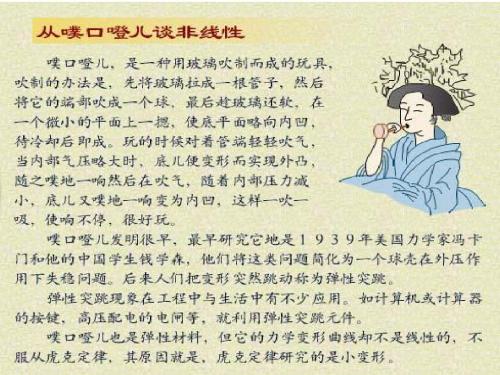 从噗口噔儿谈非线性
噗口噔儿，是一种用玻璃吹制而成的玩具，
吹制的办法是，先将玻璃拉成一根管子，然后
将它的端部吹成一个球，最后趁玻璃还软，在
一个微小的平面上一摁，使底平面略向内凹，
待冷却后即成。玩的时候对着管端轻轻吹气，
当内部气压略大时，底儿便变形而实现外凸，
随之噗地一响然后在吹气，随着内部压力减
小，底儿又噗地一响变为内凹，这样一吹一
吸，使响不停，很好玩。
噗口噔儿发明很早，最早研究它地是１９３９年美国力学家冯卡
门和他的中国学生钱学森，他们将这类问题简化为一个球壳在外压作
用下失稳问题。后来人们把变形突然跳动称为弹性突跳。
弹性突跳现象在工程中与生活中有不少应用。如计算机或计算器
的按键，高压配电的电闸等，就利用弹性突跳元件。
噗口噔儿也是弹性材料，但它的力学变形曲线却不是线性的，不
服从虎克定律，其原因就是，虎克定律研究的是小变形。